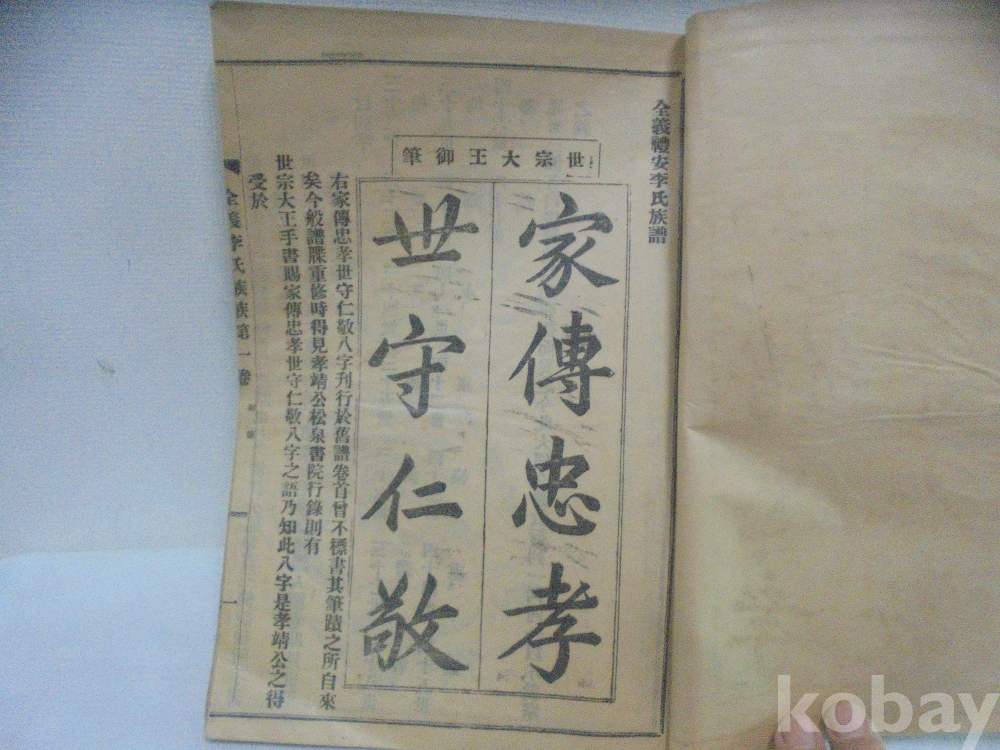 全義禮安李氏族譜
世宗大王御筆
家傳忠孝
世守仁敬
右家傳忠孝世守仁敬八字刊行於舊譜卷首曾不標書其筆蹟之所自來
矣今般譜牒重修時得見孝靖公松泉書院行錄則有
世宗大王手書賜家傳忠孝世守仁敬八字之語乃知此八字是孝靖公之得
受於
全義李氏族 第一卷
kobay